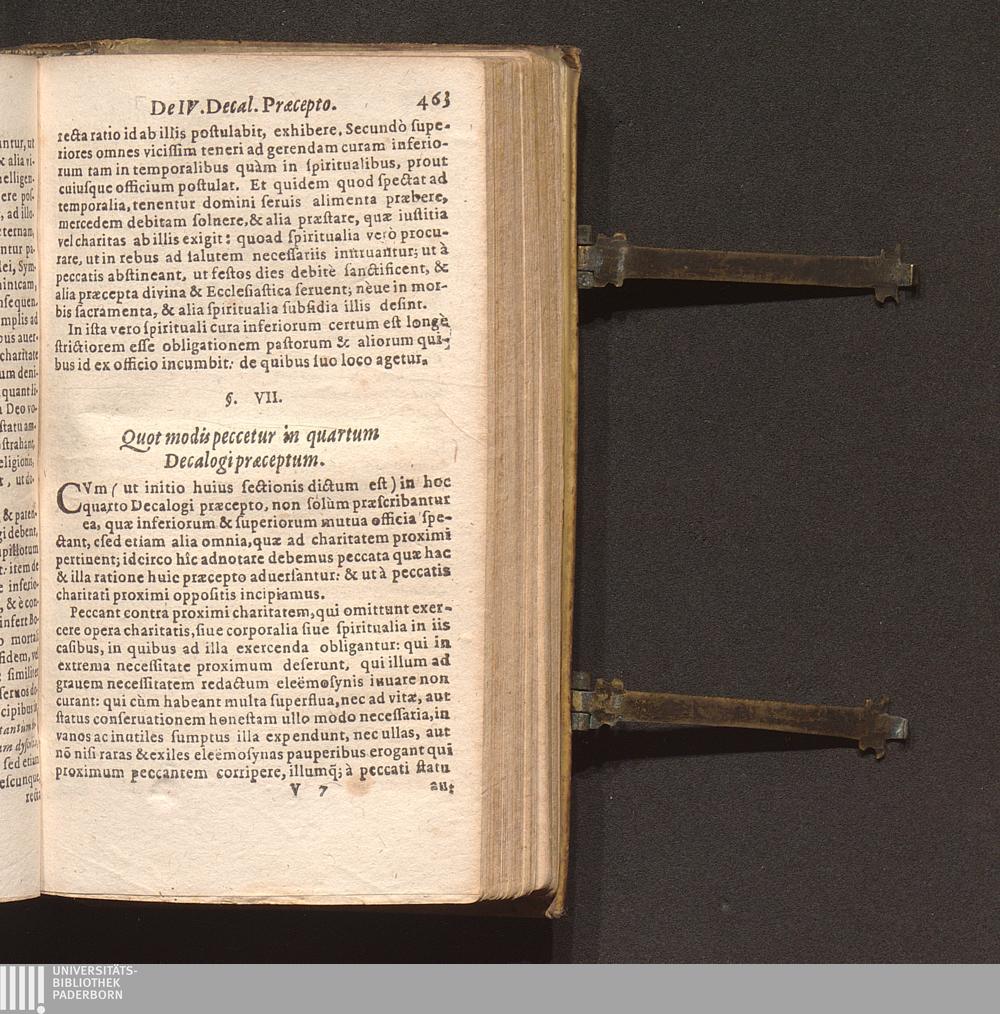 De IV. Decal. Præcepto. 463
recta ratio id ab illis poſtulabit, exhibere, Secundò ſupe-
riores omnes viciſſim teneri ad gerendam curam inferio-
rum tam in temporalibus quàm in ſpiritualibus, prout
cuiuſque officium poſtulat. Et quidem quod ſpectat ad
temporalia, tenentur domini ſeruis alimenta præbere,
mercedem debitam ſolnere, & alia præſtare, quæ iuſtitia
vel charitas ab illis exigit: quoad ſpiritualia verò procu-
rare, ut in rebus ad ſalutem neceſſariis inſtruantur; ut à
peccatis abſtineant, ut feſtos dies debitè ſanctificent, &
alia præcepta divina & Eccleſiaſtica ſeruent; nèue in mor-
bis ſacramenta, & alia ſpiritualia ſubſidia illis deſint.
In iſta vero ſpirituali cura inferiorum certum eſt longè
ſtrictiorem eſſe obligationem paſtorum & aliorum qui-
bus id ex officio incumbit: de quibus ſuo loco agetur.
§. VII.
Quot modis peccetur in quartum
Decalogi præceptum.
CVm (ut initio huius ſectionis dictum eſt) in hoc
quarto Decalogi præcepto, non ſolùm præſcribantur
ea, quæ inferiorum & ſuperiorum mutua officia ſpe-
ctant, cſed etiam alia omnia, quæ ad charitatem proximi
pertinent; idcirco hîc adnotare debemus peccata quæ hac
& illa ratione huic præcepto aduerſantur: & ut à peccatis
charitati proximi oppoſitis incipiamus.
Peccant contra proximi charitatem, qui omittunt exer-
cere opera charitatis, ſiue corporalia ſiue ſpiritualia in iis
caſibus, in quibus ad illa exercenda obligantur: qui in
extrema neceſſitate proximum deſerunt, qui illum ad
grauem neceſſitatem redactum eleëmoſynis iuuare non
curant: qui cùm habeant multa ſuperflua, nec ad vitæ, aut
ſtatus conſeruationem honeſtam ullo modo neceſſaria, in
vanos ac inutiles ſumptus illa expendunt, nec ullas, aut
nõ niſi raras & exiles eleëmoſynas pauperibus erogant qui
proximum peccantem corripere, illumq; à peccati ſtatu
V 7 aut
UNIVERSITÄTS-
BIBLIOTHEK
PADERBORN